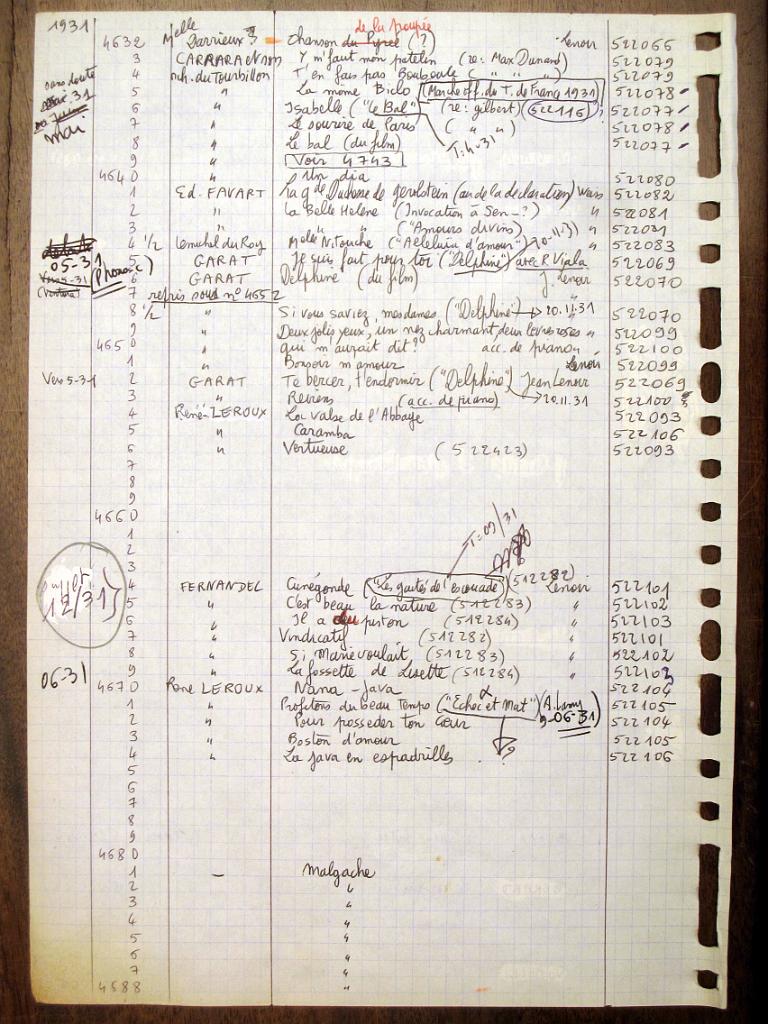 1931
de la poupée
4632 Melle Darrieux Chanson du Pyrée (?) Lenoir 522066
3 CARRARA Y m'faut mon patelin (re: Max Dunand) 522079
4 orch. du Tourbillon T'en fais pas Bouboule ( " " " ) 522079
sans doute
5 " La môme Biclo (Marche off. du T. de France 1931) 522078
6 " Isabelle ("le Bal") (re: gilbert) (522116)? 522077
mai
7 " Le sourire de Paris ( " " ) 522078
8 " Le bal (du film) T: 4-31 522077
9 " Voir 4743
4640 " Un dia 522080
1 Ed. FAVART La gde Duchesse de gerolstein (air de la déclaration) Wars 522082
2 " La Belle Helene (Invocation à Sen-?) " 522081
3 " " " ("Amours divins) " 522081
4 1/2 Lemichel du Roy Melle Nitouche ("Alleluia d'amour") " 522083
05-31 5 GARAT Je suis fait pour toi ("Delphine") avec R Vijala 522069
20-11-31
(Phonos c) 6 GARAT Delphine (du film) J. Lenoir 522070
Vers 5-31
(Ventura) 7 repris sous n° 4652
8 1/2 " Si vous saviez, mesdames ("Delphine") → 20.11.31 " 522070
9 " Deux jolis yeux, un nez charmant, deux levres roses " 522099
4650 " qui m'aurait dit? acc. de piano " 522100
1 " Bonsoir m'amour Lenoir 522099
Vers 5-31 2 GARAT Te bercer, t'endormir ("Delphine") Jean Lenoir 522069
3 " Reviens (acc. de piano) → 20.11.31 522100
4 René LEROUX La valse de l'Abbaye 522093
5 " Caramba 522106
6 " Vertueuse (522423) 522093
7
8
9
4660
1
2
3
T: 09/31
4 FERNANDEL Cunégonde ("Les gaités de l'escouade") (512282) Lenoir 522101
5 " C'est beau la nature (512283) " 522102
6 " Il a du piston (512284) " 522103
7 " Vindicatif (512282) " 522101
8 " Si Marie voulait (512283) " 522102
9 " La fossette de Lisette (512284) " 522103
06-31
4670 René LEROUX Nana-java 522104
1 " Profitons du beau temps ("Echec et Mat") (A. Lamy 9-06-31) 522105
2 " Pour posséder ton cœur 522104
3 " Boston d'amour 522105
4 " La java en espadrilles ? 522106
5
6
7
8
9
4680
1 — Malgache
2 "
3 "
4 "
5 "
6 "
7 "
4688 "